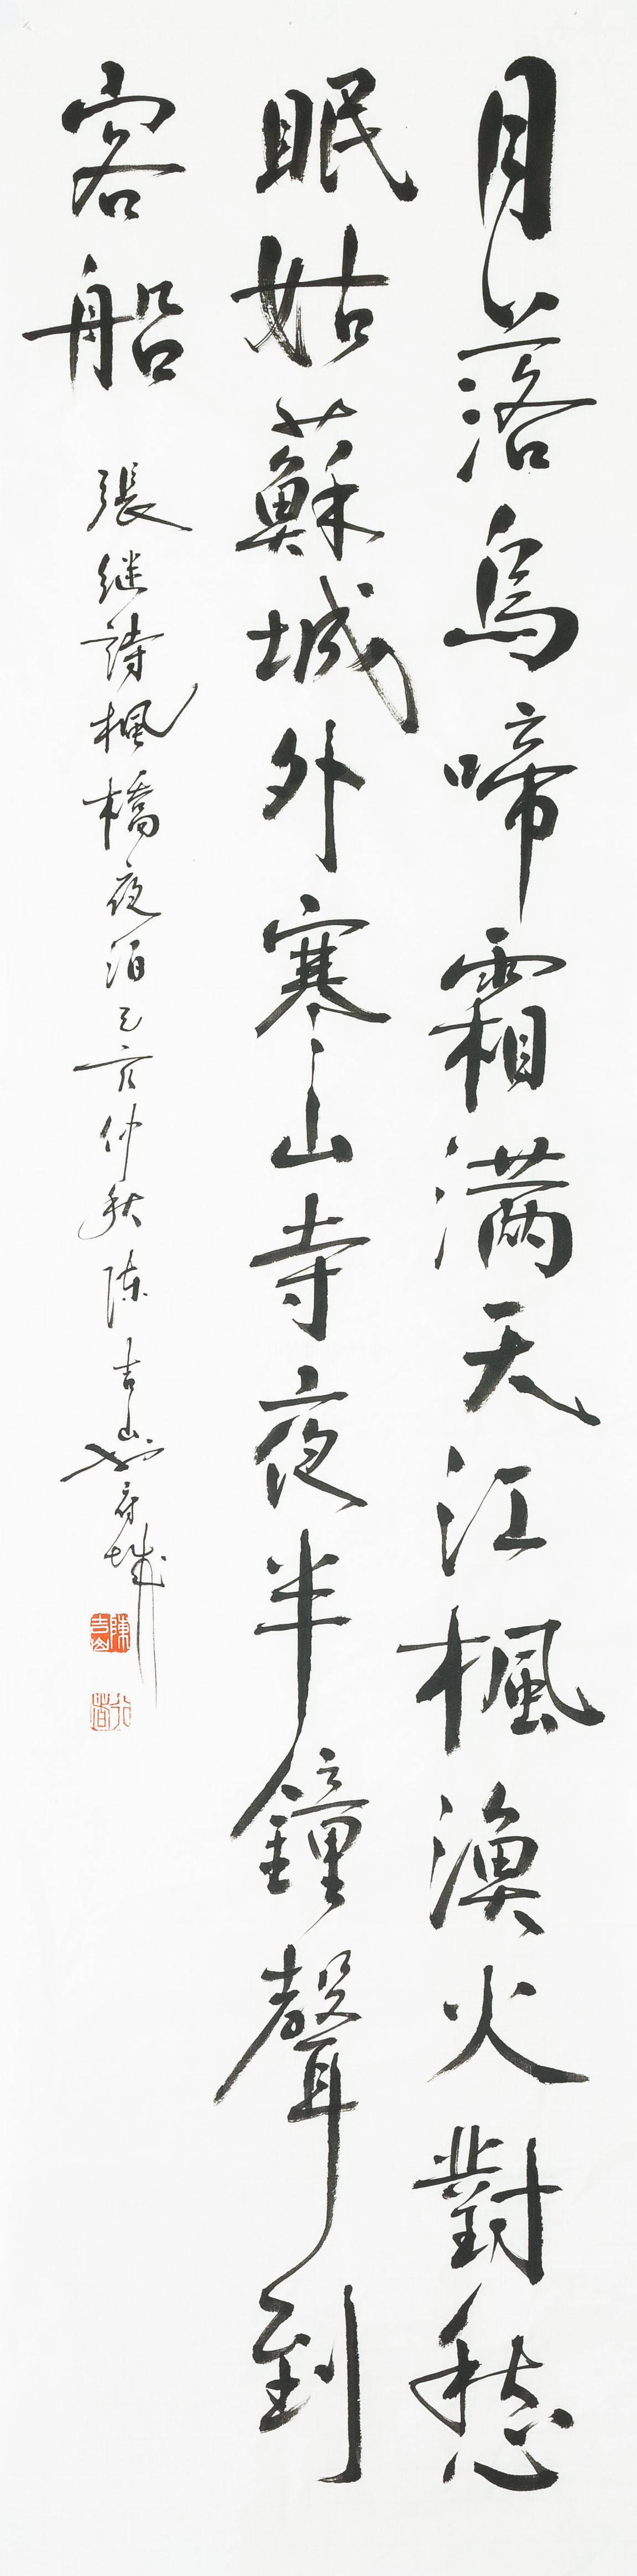 月落烏啼霜滿天江楓漁火對愁
眠姑蘇城外寒山寺夜半鐘聲到
客船
張继詩楓橋夜泊己亥仲秋陳吉山於府城
陳吉山